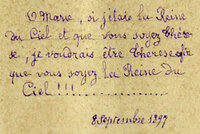 O Marie, si j'étais la Reine
du Ciel et que vous soyez Thérè-
se, je voudrais être Thérèse afin
que vous soyez la Reine du
Ciel !!!
8 septembre 1897